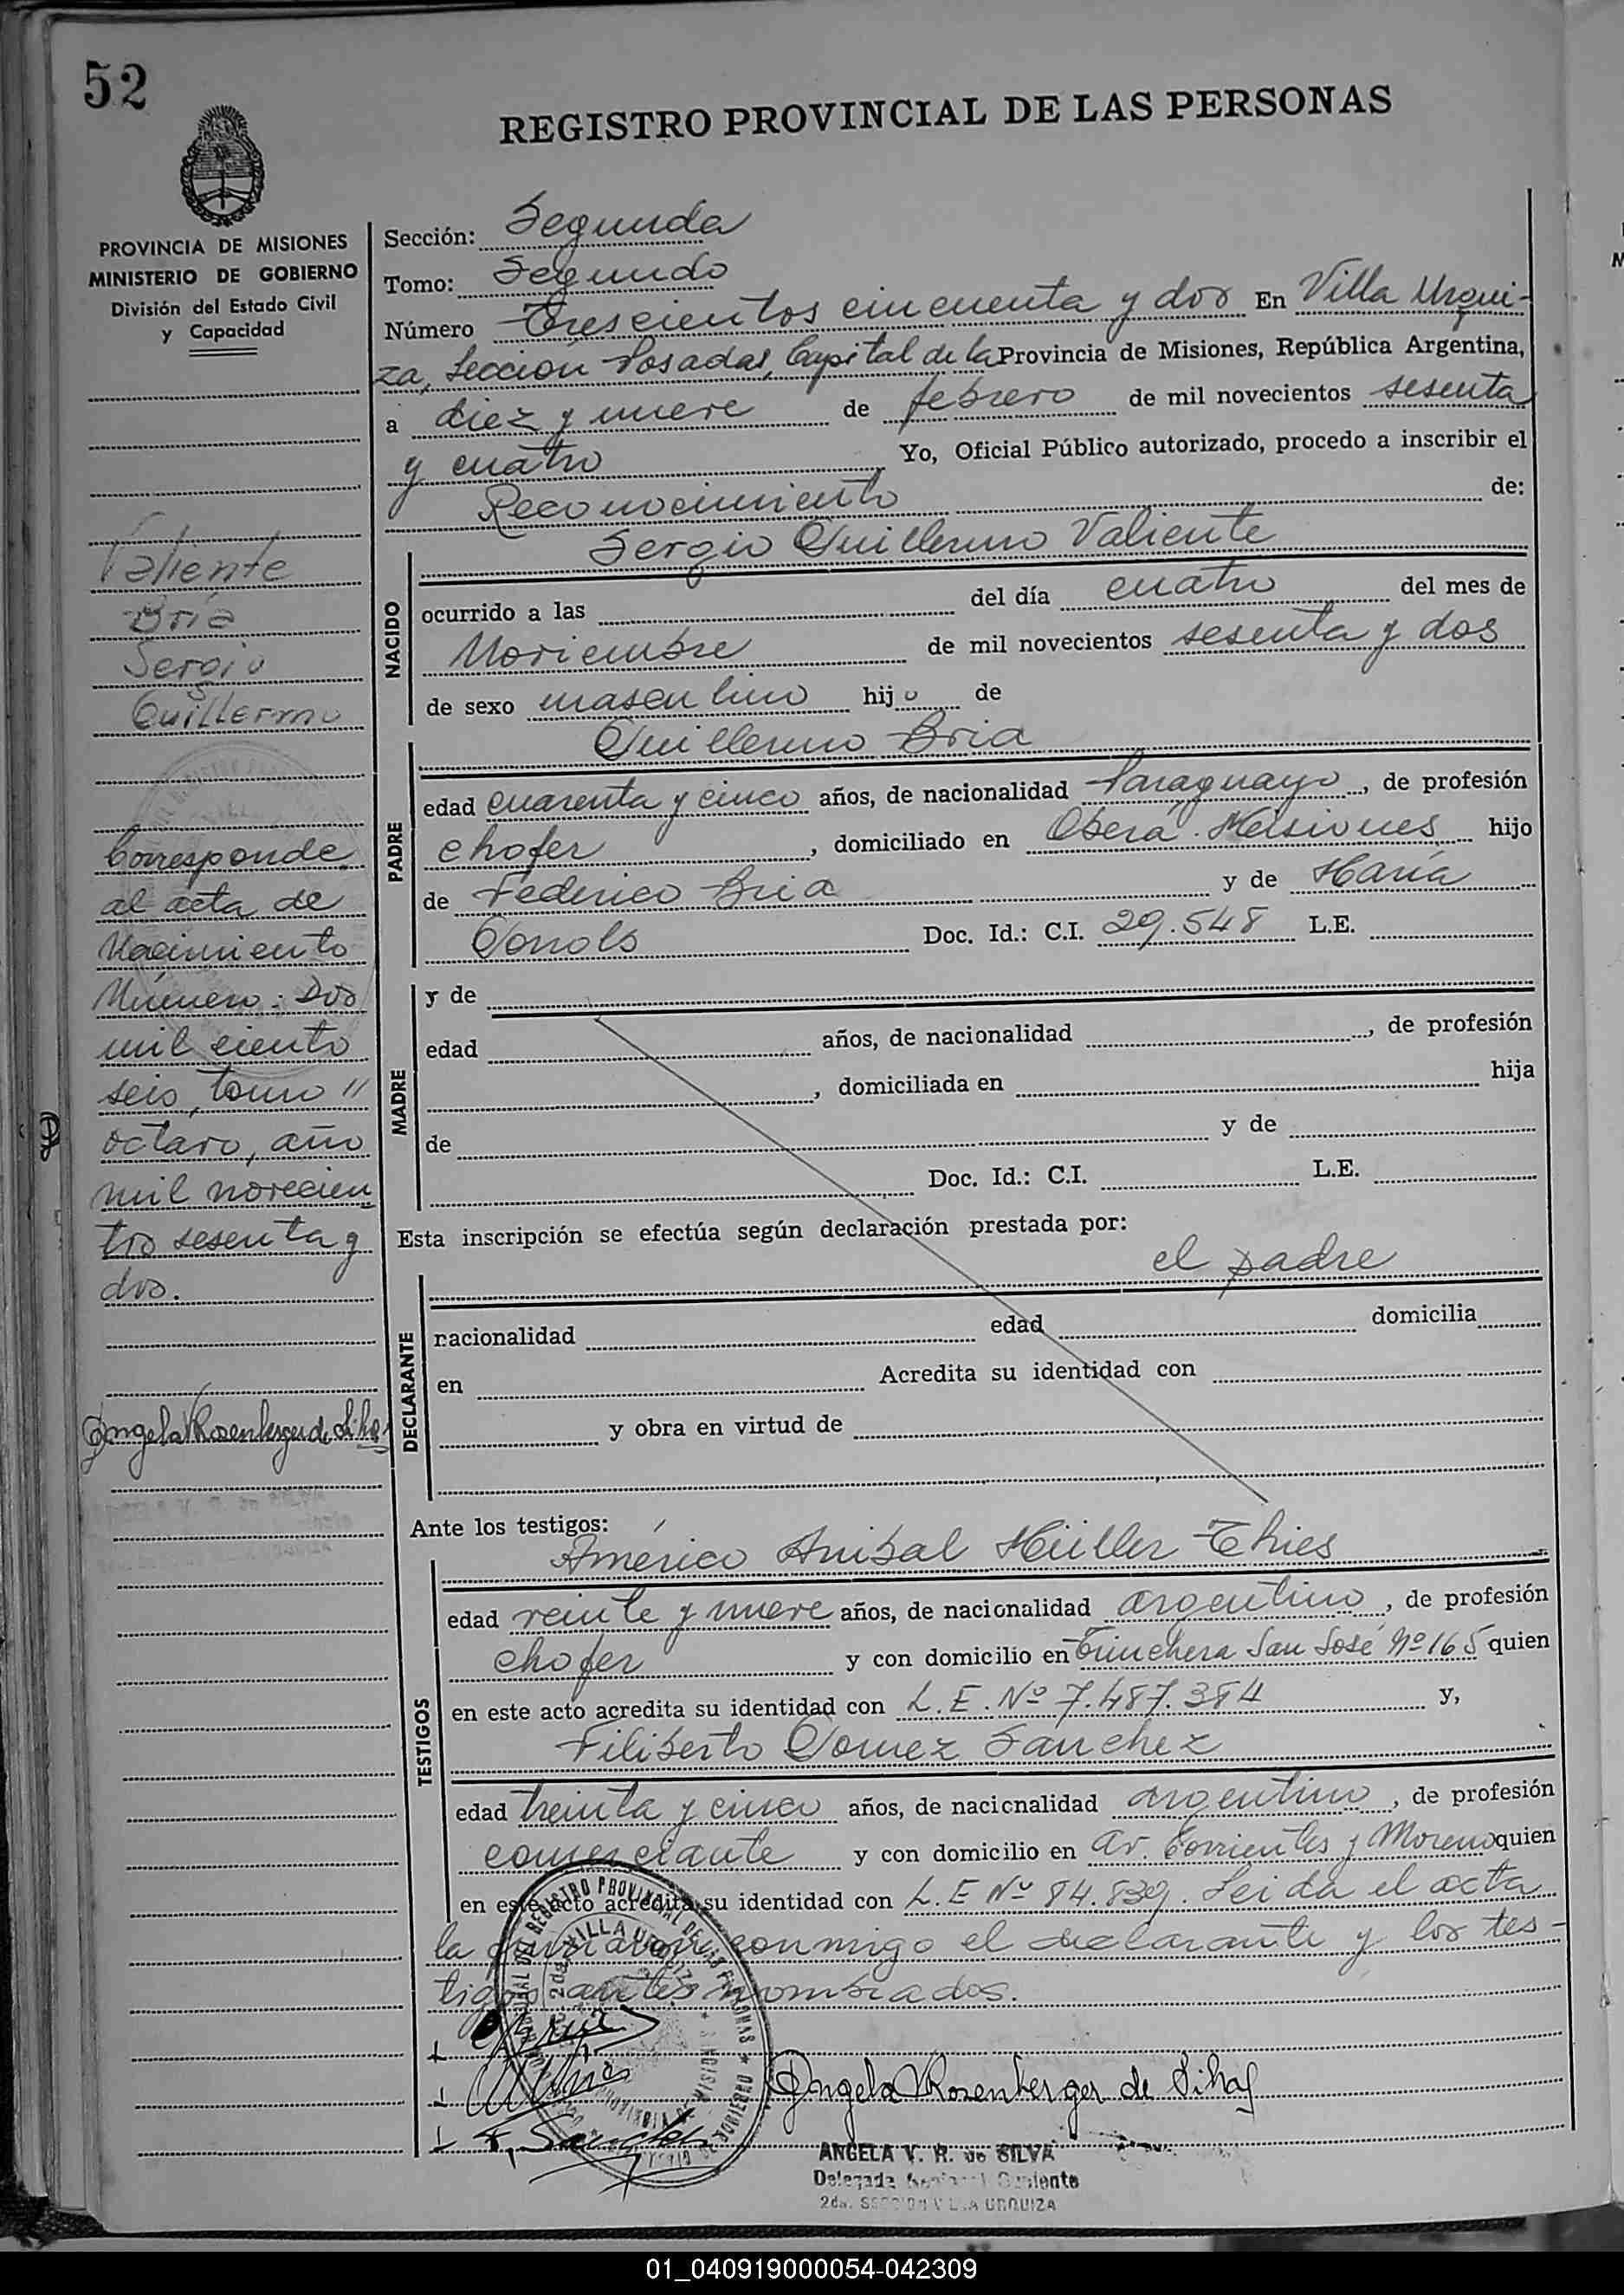 52
REGISTRO PROVINCIAL DE LAS PERSONAS
PROVINCIA DE MISIONES
MINISTERIO DE GOBIERNO
División del Estado Civil
y Capacidad
Valiente
Bria
Sergio
Guillermo
Corresponde
al acta de
Nacimiento
Número: Dos
mil ciento
seis, tomo "
octavo, año
mil novecien
tos sesenta y
dos.
Angela V Rosenberger de Silva
Sección: Segunda
Tomo: Segundo
Número Trescientos cincuenta y dos En Villa Urqui-
za, Sección Posadas, Capital de la Provincia de Misiones, República Argentina,
a diez y nueve de febrero de mil novecientos sesenta
y cuatro Yo, Oficial Público autorizado, procedo a inscribir el
Reconocimiento de:
Sergio Guillermo Valiente
NACIDO
ocurrido a las del día cuatro del mes de
Noviembre de mil novecientos sesenta y dos
de sexo masculino hijo de
Guillermo Bria
PADRE
edad cuarenta y cinco años, de nacionalidad Paraguayo, de profesión
chofer, domiciliado en Oberá - Misiones hijo
de Federico Bria y de María
Doc. Id.: C.I. 29.548 L.E.
MADRE
y de
edad años, de nacionalidad , de profesión
, domiciliada en hija
de y de
Doc. Id.: C.I. L.E.
Esta inscripción se efectúa según declaración prestada por:
el padre
DECLARANTE
nacionalidad edad domicilia
en Acredita su identidad con
y obra en virtud de
Ante los testigos:
Américo Anibal Müller Thies
TESTIGOS
edad veinte y nueve años, de nacionalidad argentino, de profesión
chofer y con domicilio en Trinchera San José Nº 165 quien
en este acto acredita su identidad con L.E. Nº 7.487.384 y,
Filiberto Gomez Sanchez
edad treinta y cinco años, de nacionalidad argentino, de profesión
comerciante y con domicilio en av. Corrientes y Moreno quien
en este acto acredita su identidad con L.E Nº 84.839. Leida el acta
la firmaron conmigo el declarante y los tes-
tigos antes nombrados.
F. Sanchez
Angela V Rosenberger de Silva
ANGELA V. R. de SILVA
Delegada
2da. SECCION VILLA URQUIZA
01_040919000054-042309